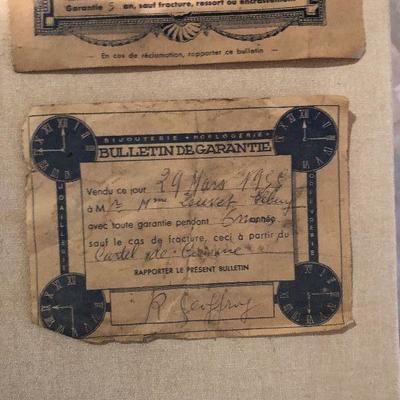 Garantie 5 an, sauf fracture, ressort ou encrassement
— En cas de réclamation, rapporter ce bulletin —
BIJOUTERIE • HORLOGERIE
BULLETIN DE GARANTIE
JOAILLERIE
ORFEVRERIE
Vendu ce jour 29 Mars
à M Mme Louvet
avec toute garantie pendant année
sauf le cas de fracture, ceci à partir du
Cartel de
RAPPORTER LE PRÉSENT BULLETIN
R Geoffroy